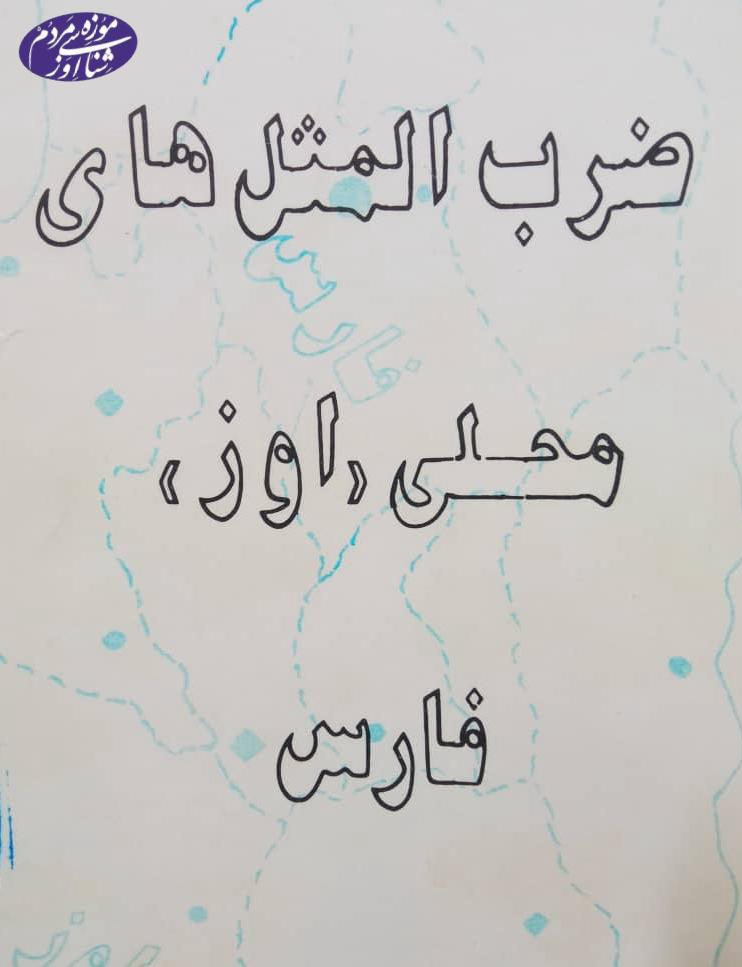 موزه‌ی مردم
شناسی اوز
ضرب المثل های
فارس
محلی «اوز»
فارس